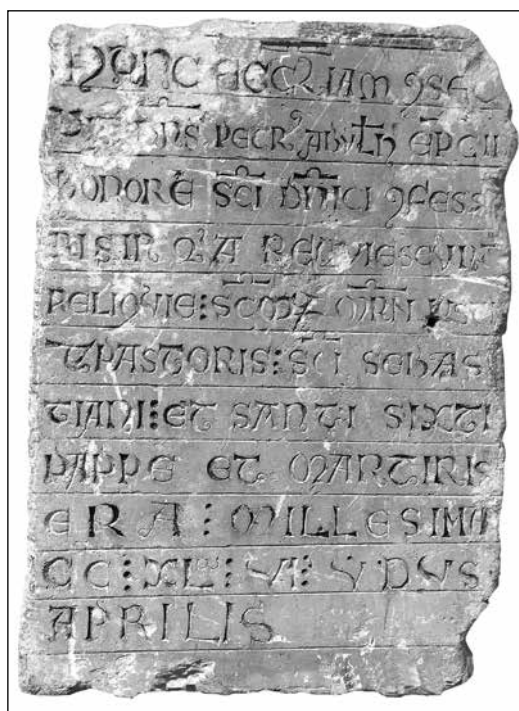 HANC ECCLIAM 9SEC
DNS PETRꝰ EPC II
HONORE SCI DNICI 9FESS
RIS IN QA REQVIESCVNT
RELIQVIE : SCOꝜ MRN
PASTORIS : SCI SEBAS
TIANI : ET SANTI SIXTI
PAPPE ET MARTIRIS
ERA : MILLESIMA
CC : XL : VDVS
APRILIS